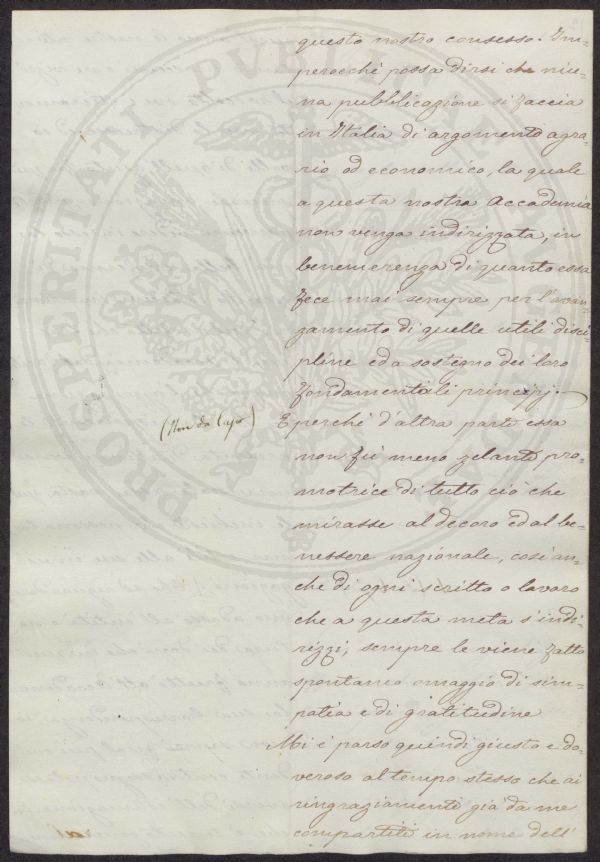 questo nostro consesso. Im-
perocchè possa dirsi che niu-
na pubblicazione si faccia
in Italia di argomento agra-
rio od economico, la quale
a questa nostra Accademia
non venga indirizzata, in
benemerenza di quanto essa
fece mai sempre per l'avan-
zamento di quelle utili disci-
pline ed a sostegno dei loro
fondamentali principj. —
(Non da Capo) E perchè d'altra parte essa
non fù meno zelante pro-
motrice di tutto ciò che
mirasse al decoro ed al be-
nessere nazionale, così an-
che di ogni scritto o lavoro
che a questa meta s'indi-
rizzi, sempre le viene fatto
spontaneo omaggio di sim-
patia e di gratitudine
Mi è parso quindi giusto e do-
veroso al tempo stesso che ai
ringraziamenti già da me
compartiti in nome dell'
PROSPERITATI PVBLICAE